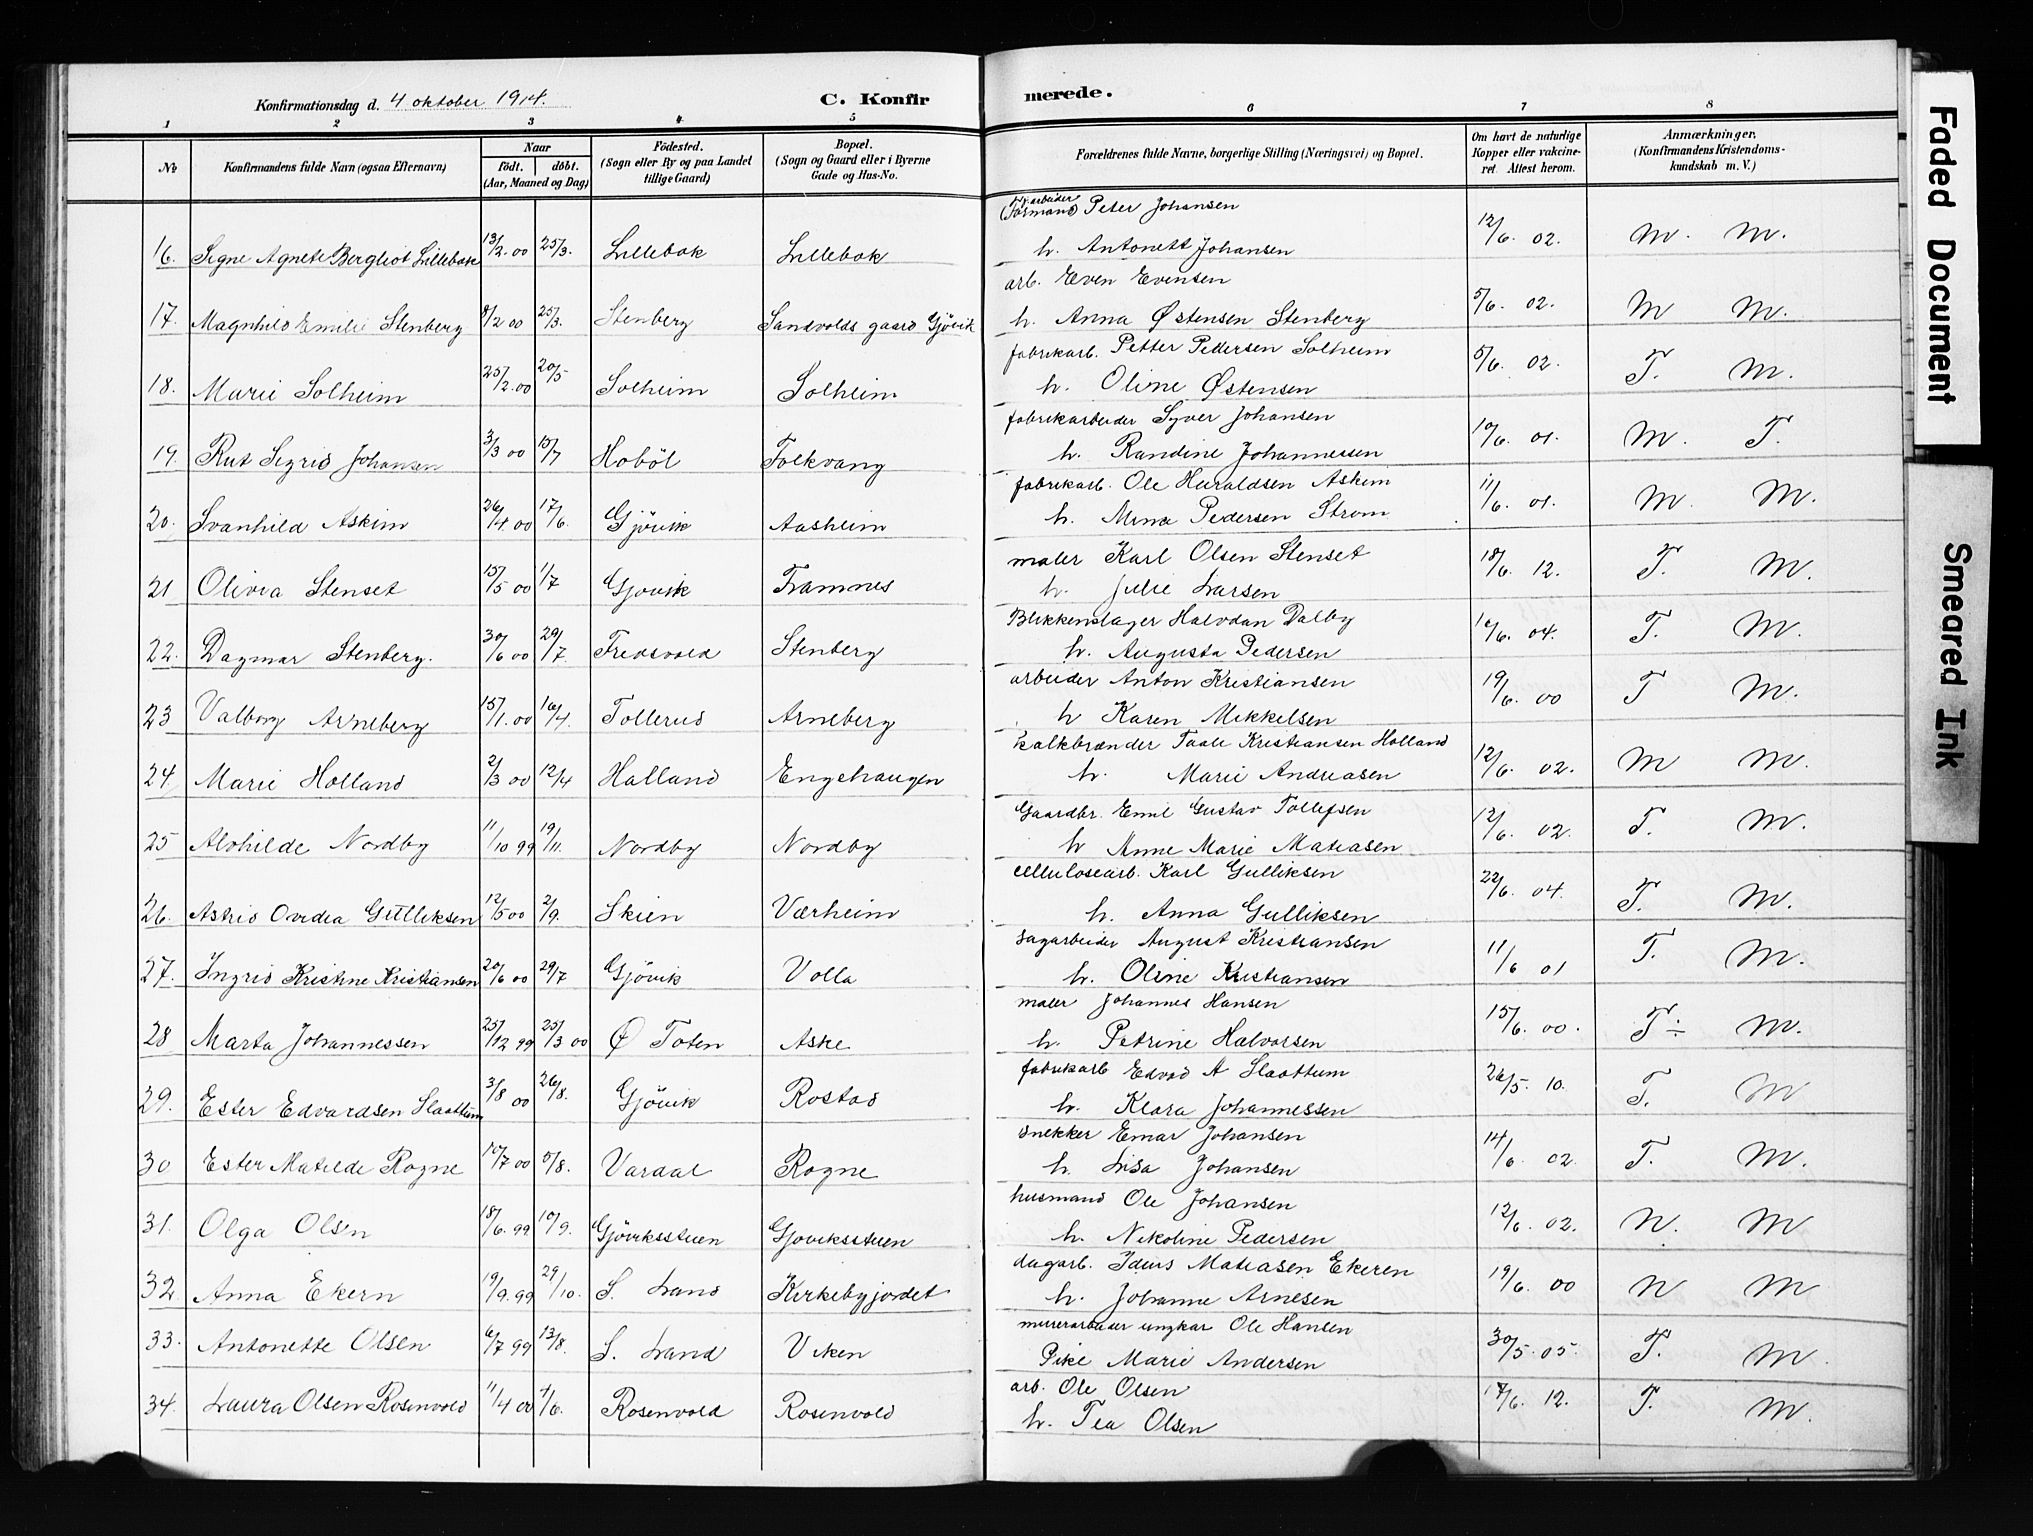 Konfirmationsdag d. 4 oktober 1914. C. Konfirmerede.
1 2 3 4 5 6 7 8
No Konfirmandens fulde Navn (ogsaa Efternavn) Naar født. døbt. (Aar, Maaned og Dag) Fødested. (Sogn eller By og paa Landet tillige Gaard) Bopæl. (Sogn og Gaard eller i Byerne Gade og Hus-No. Forældrenes fulde Navne, borgerlige Stilling (Næringsvei) og Bopæl. Om havt de naturlige Kopper eller vakcineret. Attest herom. Anmærkninger. (Konfirmandens Kristendomskundskab m. V.)
(Formand) Peter Johansen
16. Signe Agnete Bergliot Lillebak 13/2.00 25/3. Lillebak Lillebak h. Antonett Johansen 12/6. 02. M. M.
arb. Even Evensen
17. Magnhild Emilie Stenberg 8/2 00 25/3. Stenberg Sandvolds gaard Gjövik h. Anna Østensen Stenberg 5/6. 02. M M.
fabrikarb. Petter Pedersen Solheim
18. Marie Solheim 25/2.00 20/5 Solheim Solheim h. Oline Østensen 5/6. 02. T. M.
fabrikarbeider Syver Johansen
19. Rut Sigrid Johansen 3/3 00 15/7 Hobøl Folkvang h. Randine Johannessen 10/6. 01. M. T.
fabrikarb. Ole Haraldsen Askim
20. Svanhild Askim 26/4 00 17/6. Gjövik Aasheim h. Mina Pedersen Strøm 11/6. 01. M. M.
maler Karl Olsen Stenset
21 Olivia Stenset 15/5 00 1/7 Gjovik Framnes h. Julie Larsen 18/6. 12. T. M.
Blikkenslager Halvdan Dalby
22. Dagmar Stenberg. 30/6 00 29/7. Fredsvold Stenberg h. Augusta Pedersen 10/6. 04. T. M.
arbeider Anton Kristiansen
23 Valborg Arneberg 15/1.00 16/4. Tollerud Arneberg h Karen Mikkelsen 19/6. 00 T M.
kalkbrænder Paale Kristiansen Holland
24. Marie Holland 2/3 00 12/4 Halland Engehaugen h. Marie Andreasen 12/6. 02. M M.
Gaardbr. Emil Gustav Tollefsen
25 Alvhilde Nordby 11/10 99 19/11. Nordby Nordby h Anne Marie Matiasen 12/6. 02. T. M.
cellulosearb. Karl Gulliksen
26. Astrid Ovidia Gulliksen 12/5 00 2/9. Skien Værheim h. Anna Gulliksen 22/6. 04. T. M.
sagarbeider August Kristiansen
27. Ingrid Kristine Kristiansen 20/6 00 29/7 Gjövik Volla h. Oline Kristiansen 11/6 01 T. M.
maler Johannes Hansen
28 Marta Johannessen 25/12 99 25/3 00 Ø Toten Aske h. Petrine Halvorsen 15/6. 00. T÷ M.
fabrikarb Edvad A Slaattum
29. Ester Edvardsen Slaattum 3/8 00 26/8. Gjövik Rostad h. Klara Johannessen 26/5. 10. T. M
snekker Emar Johansen
30 Ester Matilde Rogne 10/7 00 5/8. Vardal Rogne h. Lisa Johansen 14/6. 02. T. M.
husmand Ole Johansen
31. Olga Olsen 18/6. 99 10/9. Gjöviksstuen Gjoviksstuen h. Nikoline Pedersen 12/6. 02. N. M
dagarb. Ideus Matiasen Ekeren
32. Anna Ekern 19/9.99 29/10. S. Land Kirkebyjordet h. Johanne Arnesen 19/6. 00 N M
murerarbeider ungkar Ole Hansen
33. Antonette Olsen 6/7 99 13/8. S. Land Viken Pike Marie Andersen 30/5. 05. T. M.
arb. Ole Olsen
34. Laura Olsen Rosenvold 11/4 00 4/6. Rosenvold Rosenvold h. Tea Olsen 17/6. 12. T. M.
Faded Document
Smeared Ink